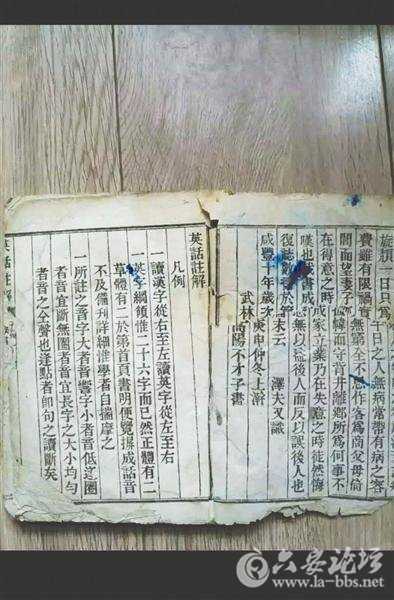 一日只為千日之人無病常帶有病之容
費雖有限禍實無窮全不作客為商父母倚
閭而望妻子幃而守背井離鄉所為何事不
在得意之時成家立業乃在失意之時徒然悔
嘆也茲書成無以後人而反以誤後人也
復誌數於末云 澤夫又識
咸豐十年歲次庚申仲冬上澣
武林高陽不才子書
英話註解
凡例
一讀漢字從右至左讀英字從左至右
一英字綱領惟二十六字而已然正體有二
草體有二於第首頁書明便覽拼成話音
不及備刊詳細惟學者自揣摩之
一所註之音字大者音響字小者音低逐圈
者音宜斷無圈者音宜長字之大小均勻
者音之全聲也逢點者即句之讀斷矣
英話註解
六安论坛
www.la-bbs.net